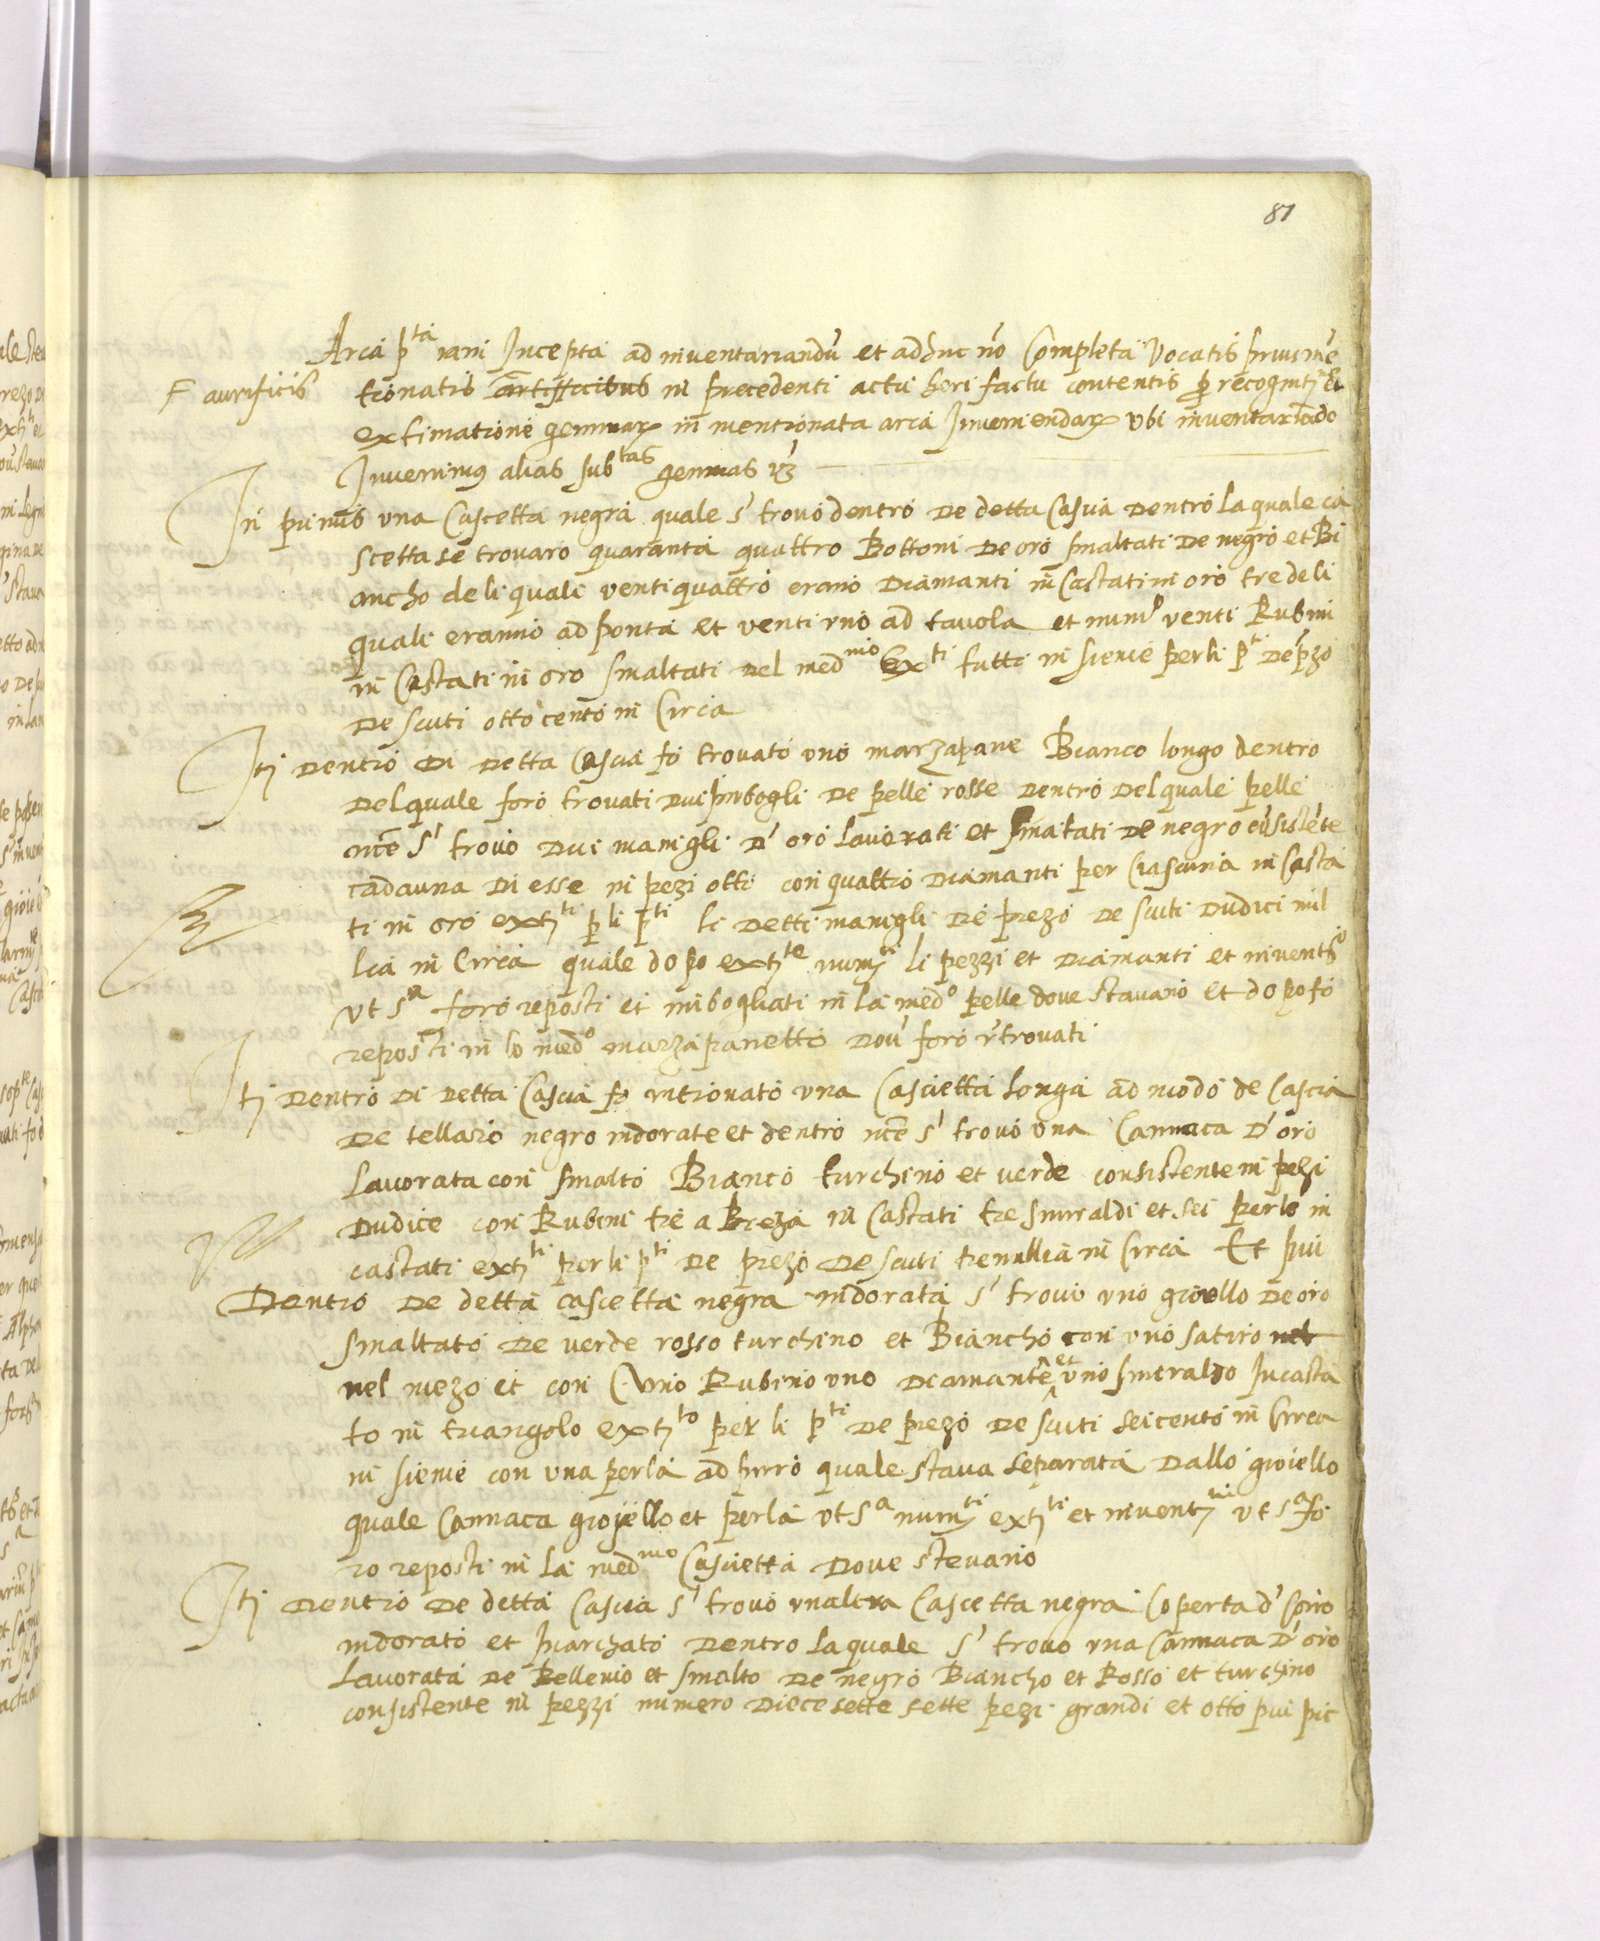 87
Arca p.ta iam Incepta ad inventariandū et adhuc nō Completa Vocatis prius mē
F aurificis tionatis artificibus in precedenti actu heri factu contentis p recognit.e et
extimatione gemmar in mentionata arca Inveniendar Ubi inventariādo
Invenimus alias sub.tas gemmas vz
In primis una Cascetta negra quale s' trovò dentro de detta Cascia dentro la quale ca
scetta se trovaro quaranta quattro Bottoni de oro smaltati de negro et Bi
ancho deli quali ventiquattro erano Diamanti in Castati in oro tre deli
quali eranno ad ponta et venti uno ad tavola et num.o venti Rubini
in Castati in oro smaltati del med.mo Ex.ti tutti in sieme per li p.ti de p.zo
De scuti otto cento in Circa
Itj Dentro Di Detta Cascia fo trovato uno marzapane Bianco longo dentro
Del quale foro trovati Dui imbogli De pelle rosse Dentro Del quale pelle
nce s' trovò Dui manigli D' oro lavorati et smaltati De negro cōsistēte
cadauna Di esse in pezi otti con quattro Diamanti per Ciascuna in Casta
ti in oro ext.ti p li p.ti li Detti manigli De prezo De scuti Dudici mil
lia in Circa quale dopo ext.te num.ti li pezzi et Diamanti et invent.o
ut s.a foro reposti et imbogliati in la med.o pelle dove stavano et dopo fo
reposti in lo med.o marzapanetto Dov' foro r'trovati
Itj Dentro Di Detta Cascia fo introvato una Cascietta longa ad modo de Cascia
De tellaro negro indorate et dentro nce s' trovò una Cannaca D' oro
Lavorata con smalto Bianco turchino et verde consistente in pezi
Dudice con Rubini tre a Breza in Castati tre smiraldi et sei perle in
castati ext.ti per li p.ti De prezo De scuti tremillia in Circa Et piu
Dentro De detta cascetta negra indorata s' trovò uno gioiello De oro
smaltato De verde rosso turchino et Biancho con uno safiro nel
nel mezo et con Uno Rubino uno Diamante et uno smeraldo Incasta
to in triangolo ext.to per li p.ti De prezo De scuti seicento in Circa
in sieme con una perla ad pirro quale stava separata Dallo gioiello
quale Cannaca gioiello et perla ut s.a num.ti ext.ti et invent.ti ut s.a fo
ro reposti in la med.mo Cascietta Dove stevano
Itj Dentro De detta Cascia s' trovò unaltra Cascetta negra Coperta d' Coiro
indorato et Inarchato Dentro la quale s' trovo una Cannaca D' oro
Lavorata De Rellevio et smalto De negro Biancho et Rosso et turchino
consistente in pezzi numero Diece sette sette pezi grandi et otto piu pic